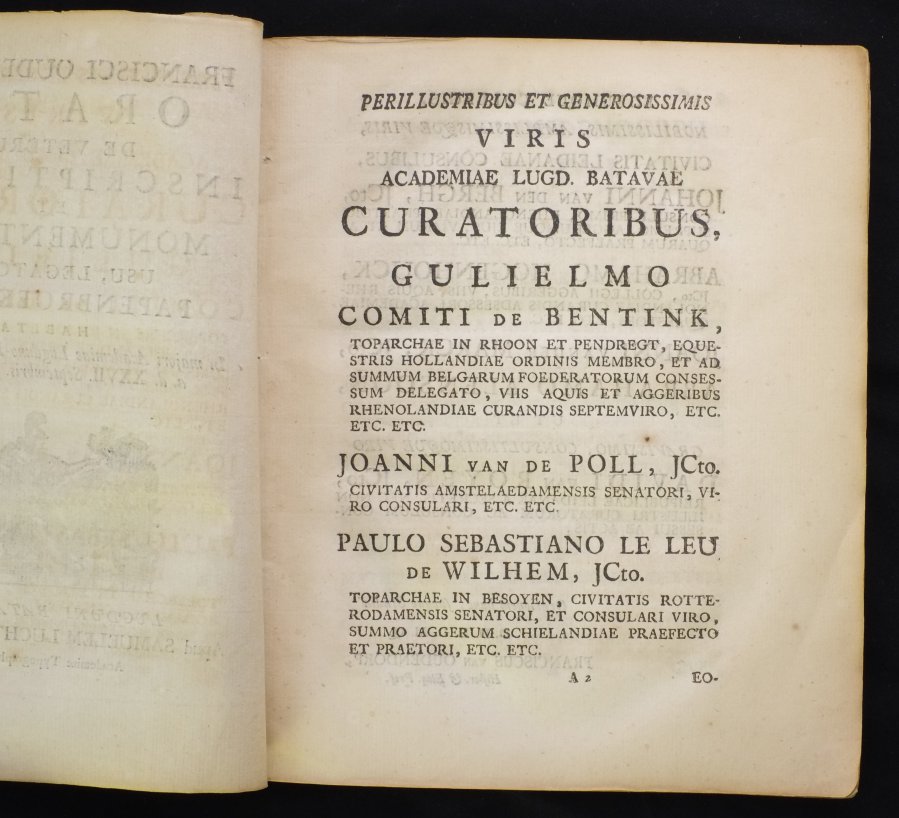 PERILLUSTRIBUS ET GENEROSISSIMIS
VIRIS
ACADEMIAE LUGD. BATAVAE
CURATORIBUS,
GULIELMO
COMITI DE BENTINK,
TOPARCHAE IN RHOON ET PENDREGT, EQUE-
STRIS HOLLANDIAE ORDINIS MEMBRO, ET AD
SUMMUM BELGARUM FOEDERATORUM CONSES-
SUM DELEGATO, VIIS AQUIS ET AGGERIBUS
RHENOLANDIAE CURANDIS SEPTEMVIRO, ETC.
ETC. ETC.
JOANNI VAN DE POLL, JCto.
CIVITATIS AMSTELAEDAMENSIS SENATORI, VI-
RO CONSULARI, ETC. ETC.
PAULO SEBASTIANO LE LEU
DE WILHEM, JCto.
TOPARCHAE IN BESOYEN, CIVITATIS ROTTE-
RODAMENSIS SENATORI, ET CONSULARI VIRO,
SUMMO AGGERUM SCHIELANDIAE PRAEFECTO
ET PRAETORI, ETC. ETC.
A 2 EO-